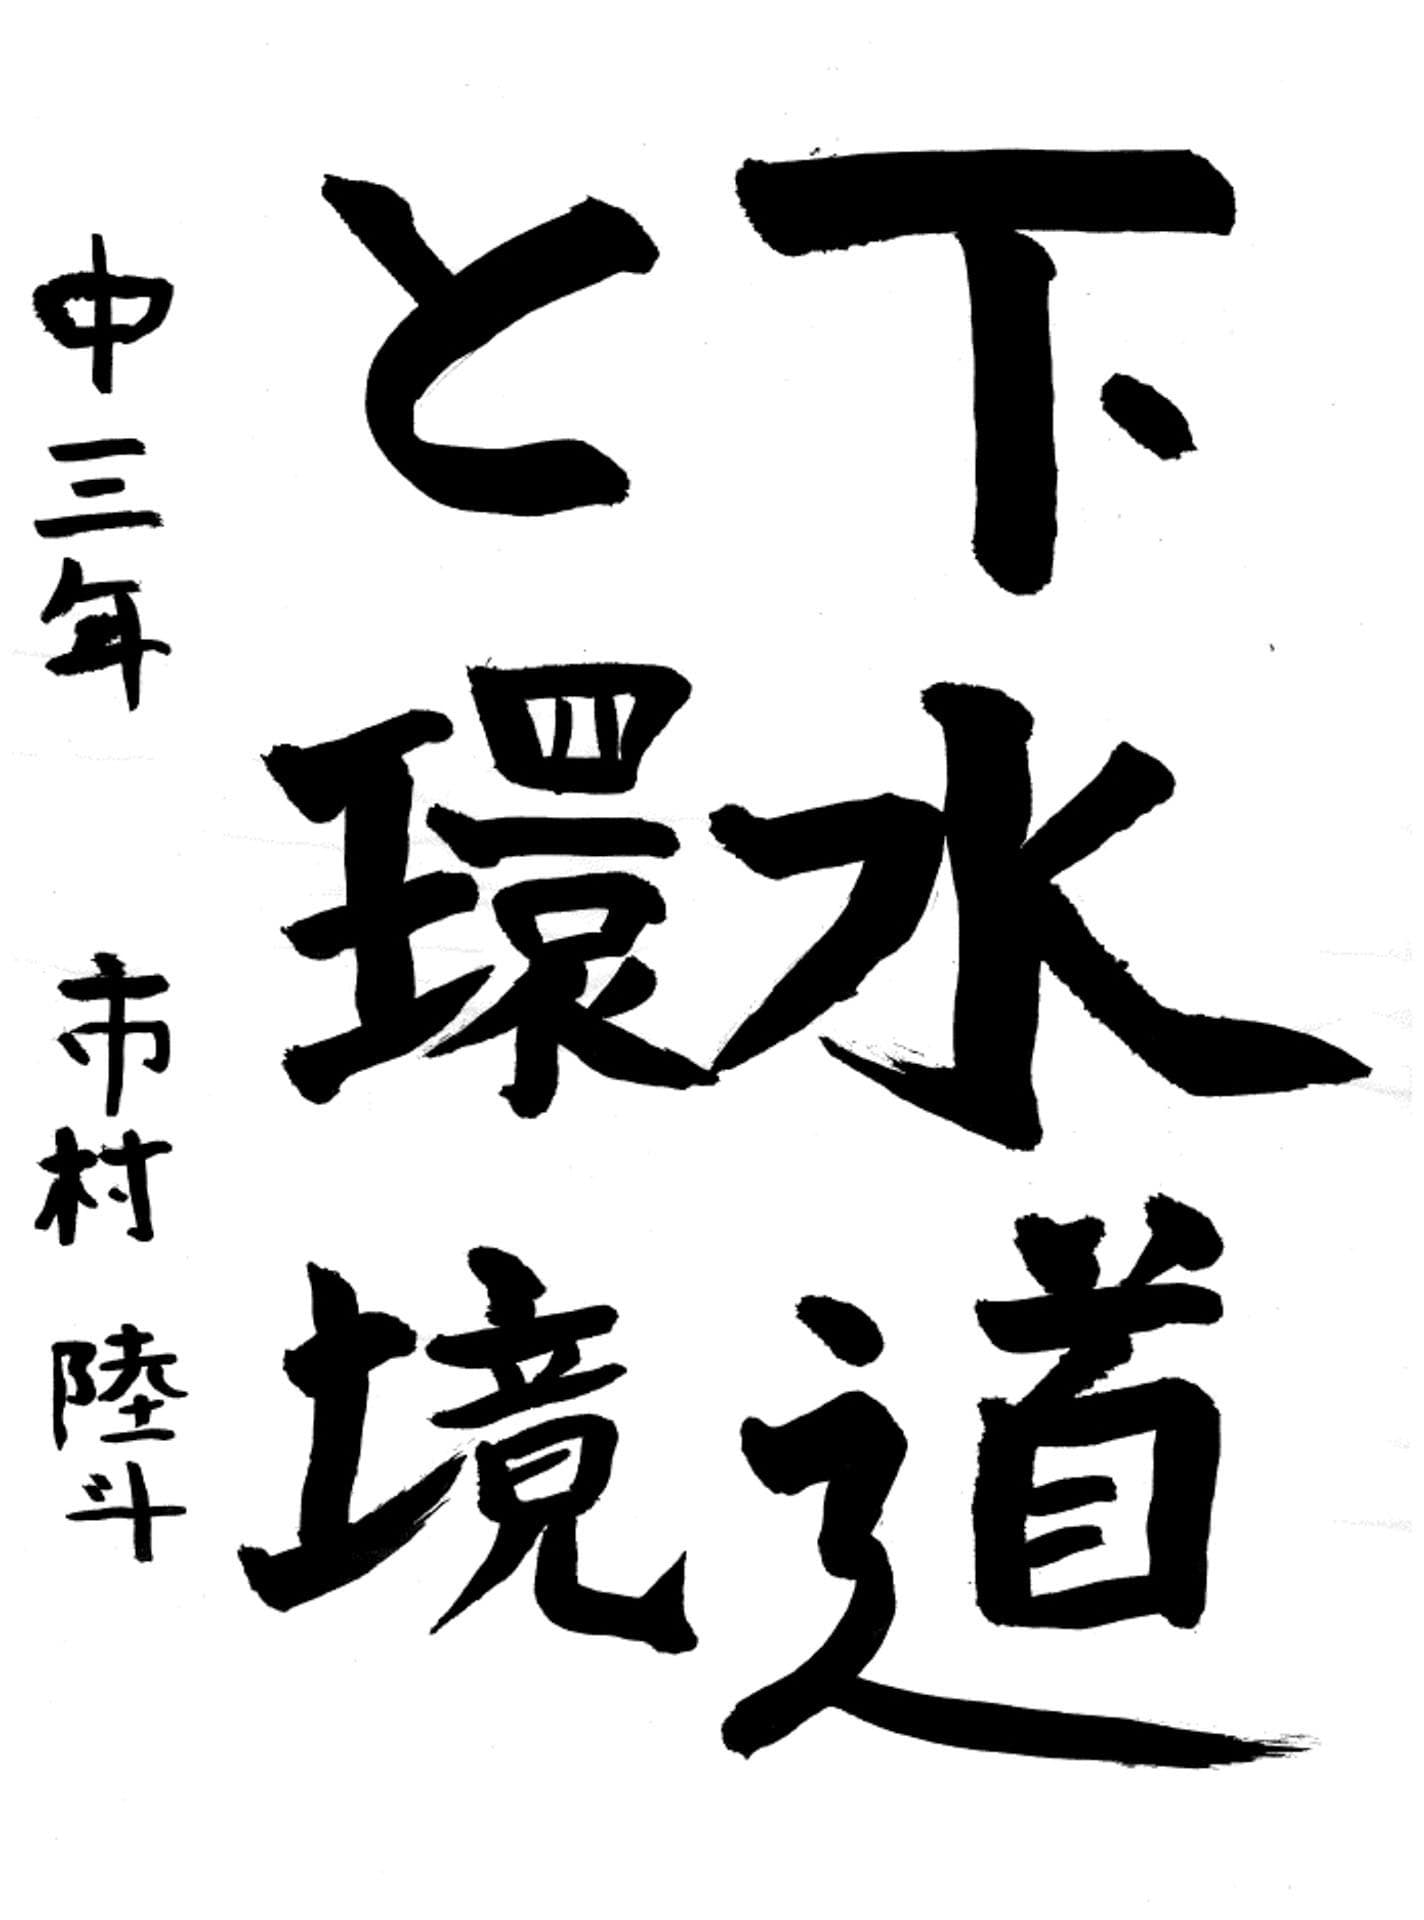 下水道
と環境
中三年 市村 陸斗